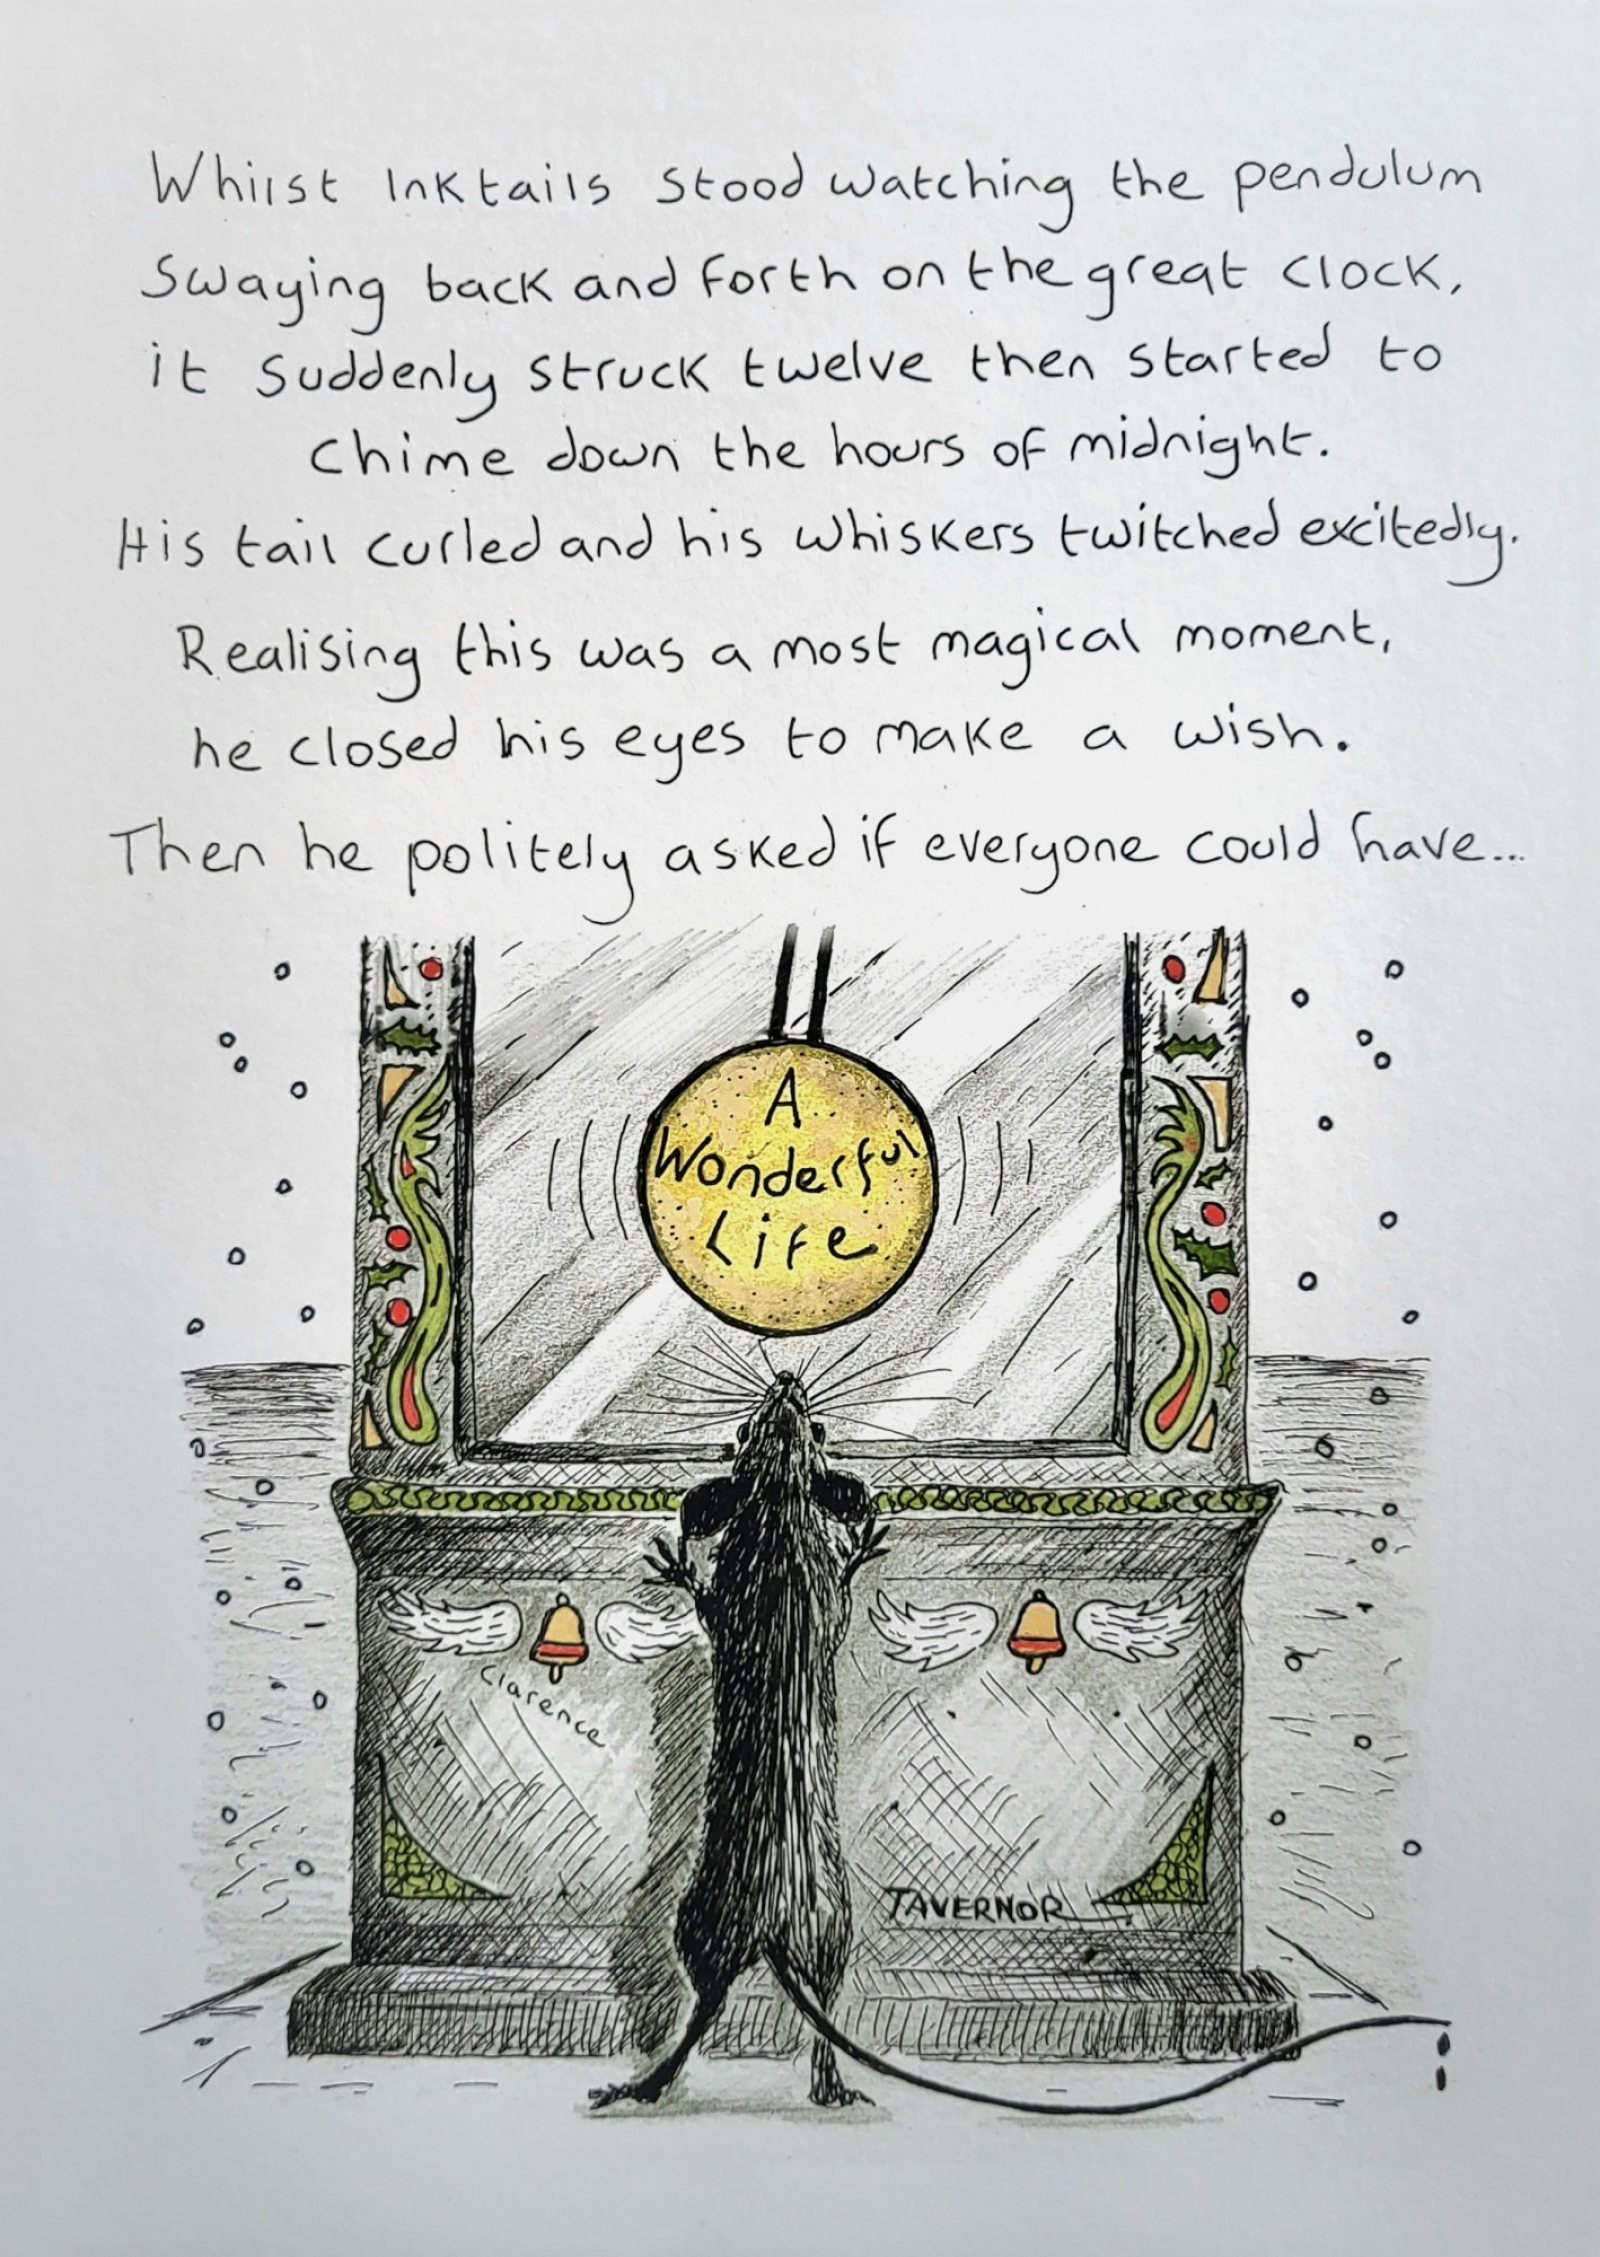 Whilst Inktails stood watching the pendulum
swaying back and forth on the great clock,
it suddenly struck twelve then started to
chime down the hours of midnight.
His tail curled and his whiskers twitched excitedly.
Realising this was a most magical moment,
he closed his eyes to make a wish.
Then he politely asked if everyone could have...
A
Wonderful
Life
Clarence
TAVERNOR